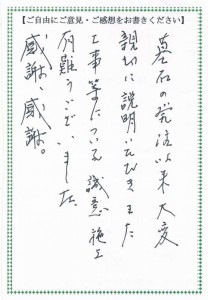 【ご自由にご意見・ご感想をお書きください】
墓石の発注以来大変
親切に説明いただきまた
工事等について誠意施工
有難うございました。
感謝、感謝。